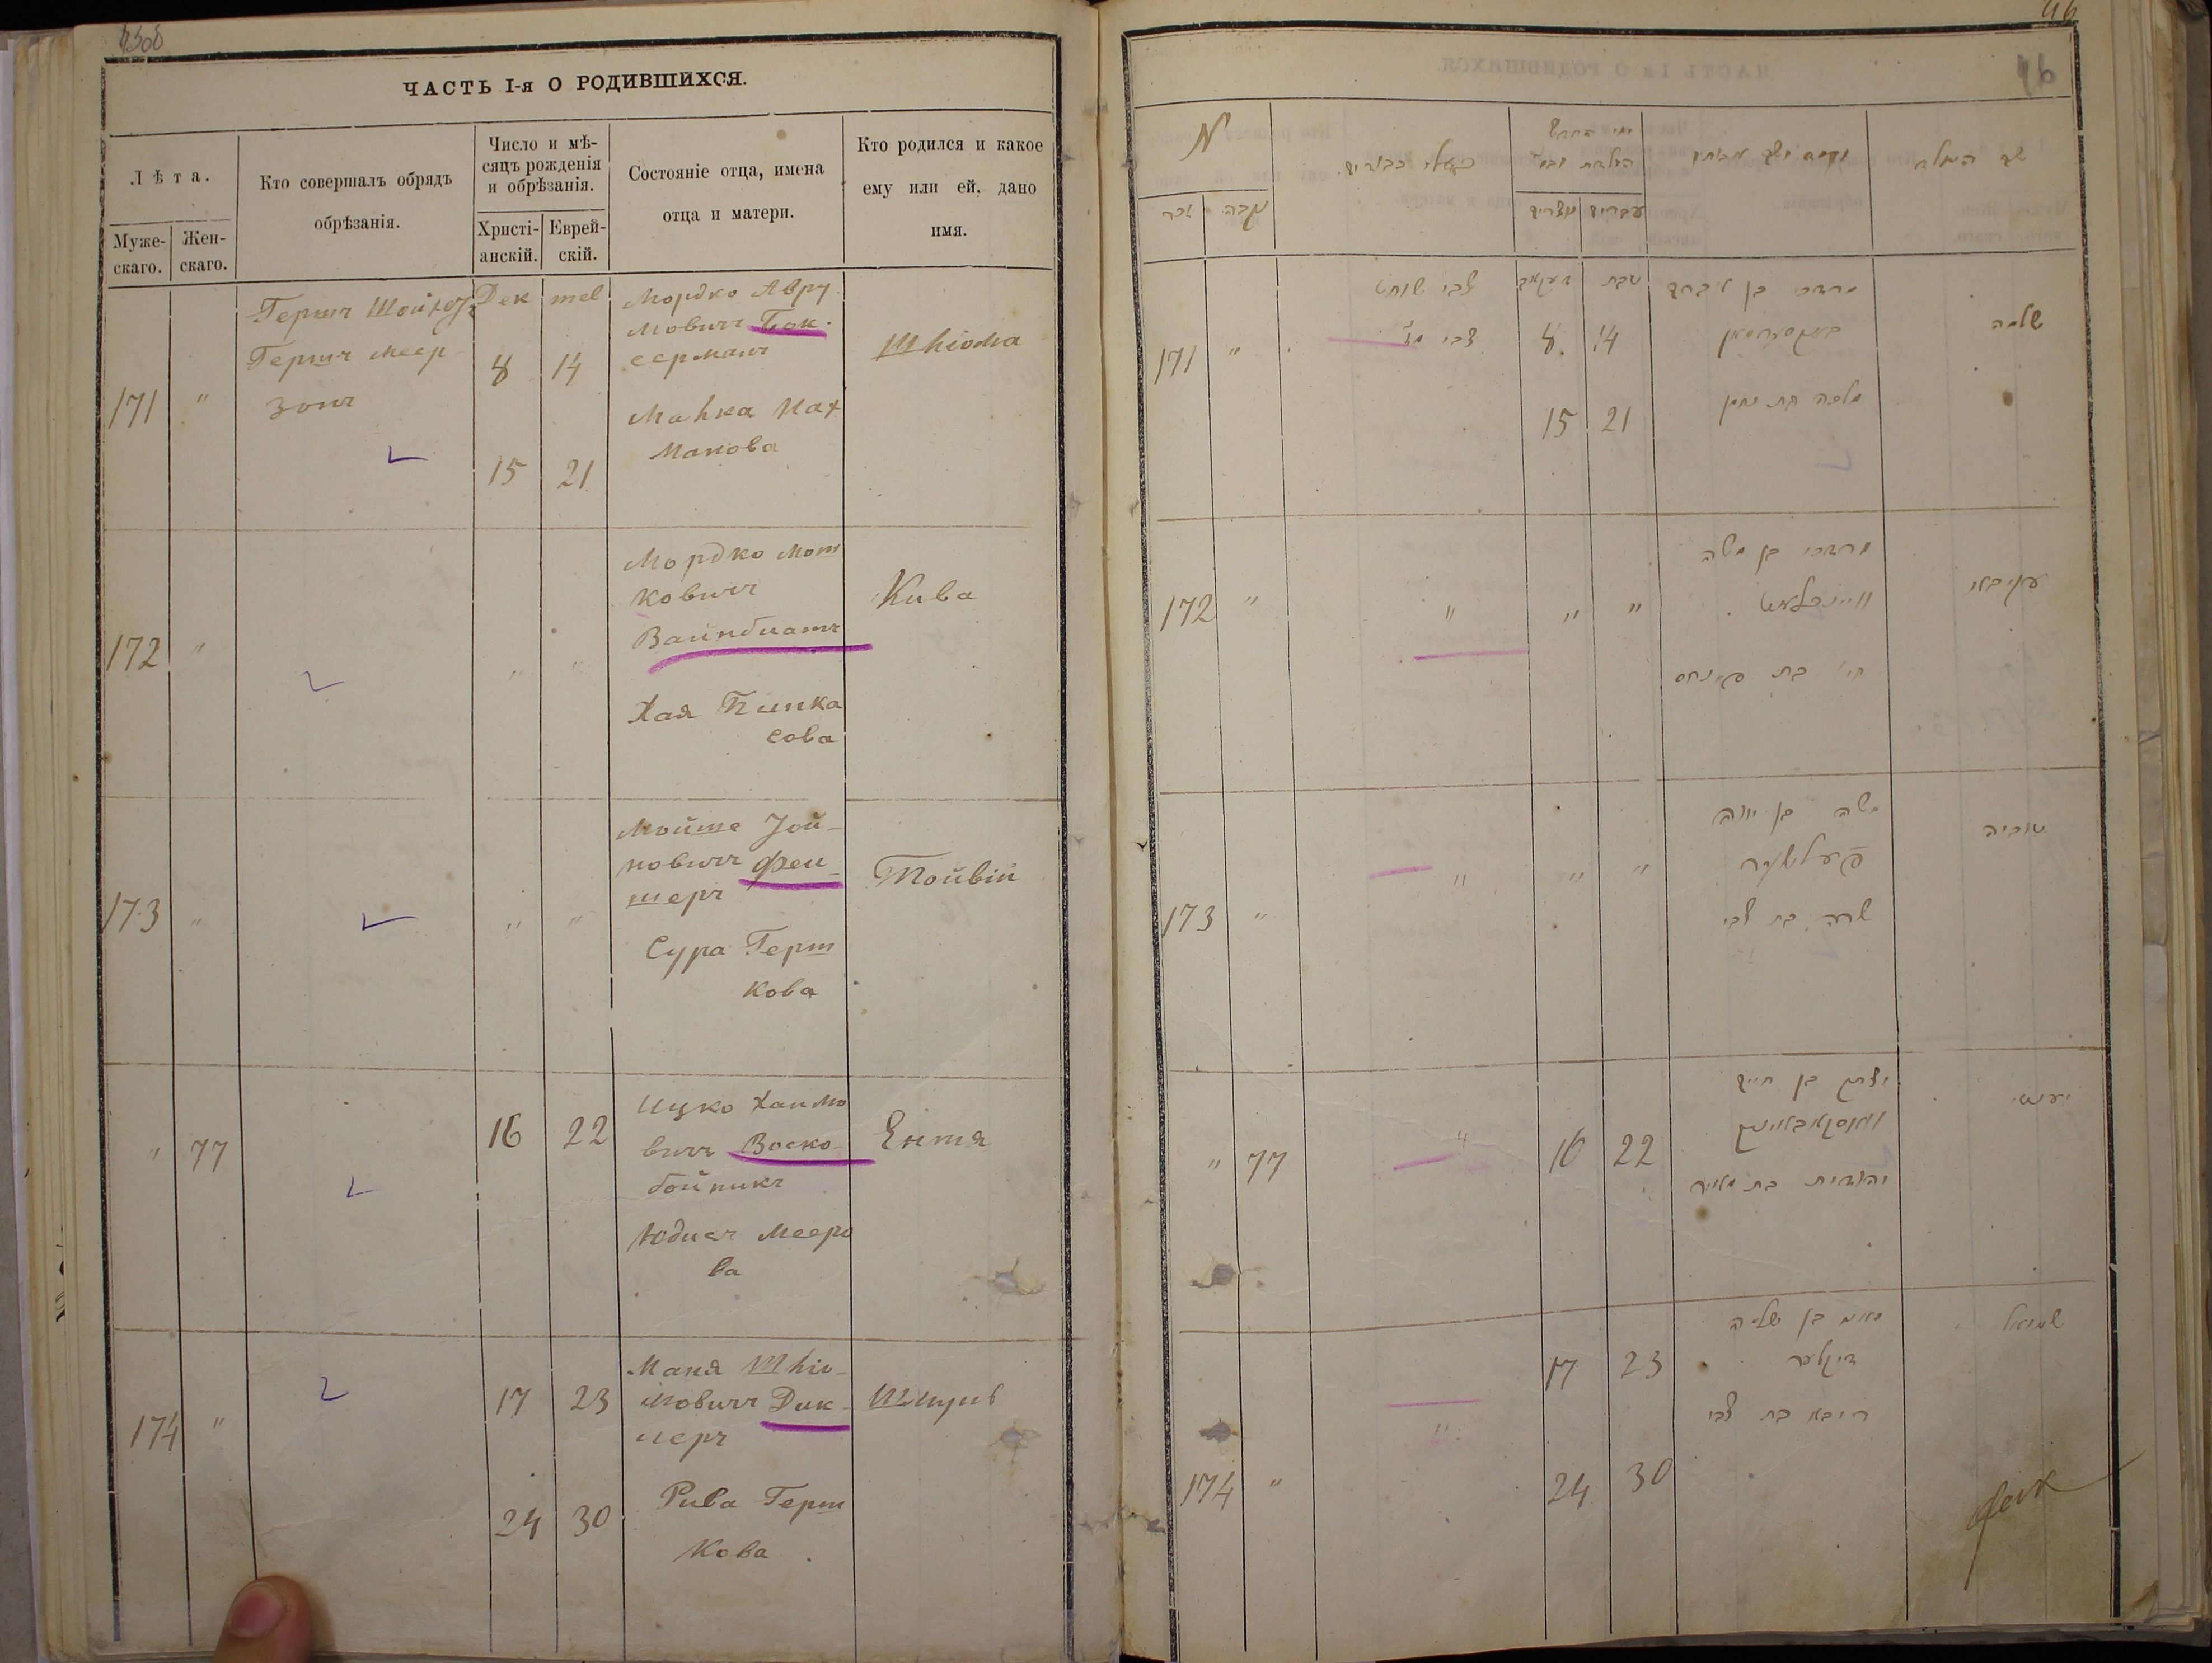 ЧАСТЬ I-я О РОДИВШИХСЯ.
Лѣта.
Муже-
скаго.
Жен-
скаго.
Кто совершалъ обрядъ
обрѣзанія.
Число и мѣ-
сяцъ рожденія
и обрѣзанія.
Христі-
анскій.
Еврей-
скій.
Состояніе отца, имена
отца и матери.
Кто родился и какое
ему или ей, дано
имя.
171 "
Гершъ Шойхетъ
Гершъ Меер-
зонъ
Дек
8
15
теб
14
21
Мордко Авру
мовичъ Бок-
серманъ
Малка Нах
манова
Шліома
172 "
" "
Мордко Мош
ковичъ
Вайнблатъ
Хая Пинка
сова
Кива
173 "
" "
Мойше Іой-
новичъ Фел-
шеръ
Сура Герш
кова
Тойвій
" 77
16 22
Ицко Хаимо
вичъ Воско-
бойникъ
Юдисъ Мееро
ва
Ентя
174 "
17 23
24 30
Маня Шліо-
мовичъ Дик-
леръ
Рива Герш
кова
Шмуль
46
46
№
זכר
נקבה
שם הנולד
171 "
צבי שוחט
8 14
15 21
טבת
מרדכי בן אברהם
מלכה בת נחמן
שלמה
172 "
" " "
מרדכי בן משה
וויינבלאט
חי' בת פינחס
עקיבא
173 "
" " "
משה בן יונה
פעלשער
שרה בת צבי
טוביה
" 77
"
16 22
יצחק בן חיים
וואסקאבאיניק
יהודית בת מאיר
יענטי
174 "
"
17 23
24 30
בן שלמה
דיקלער
ריבא בת צבי
שמואל